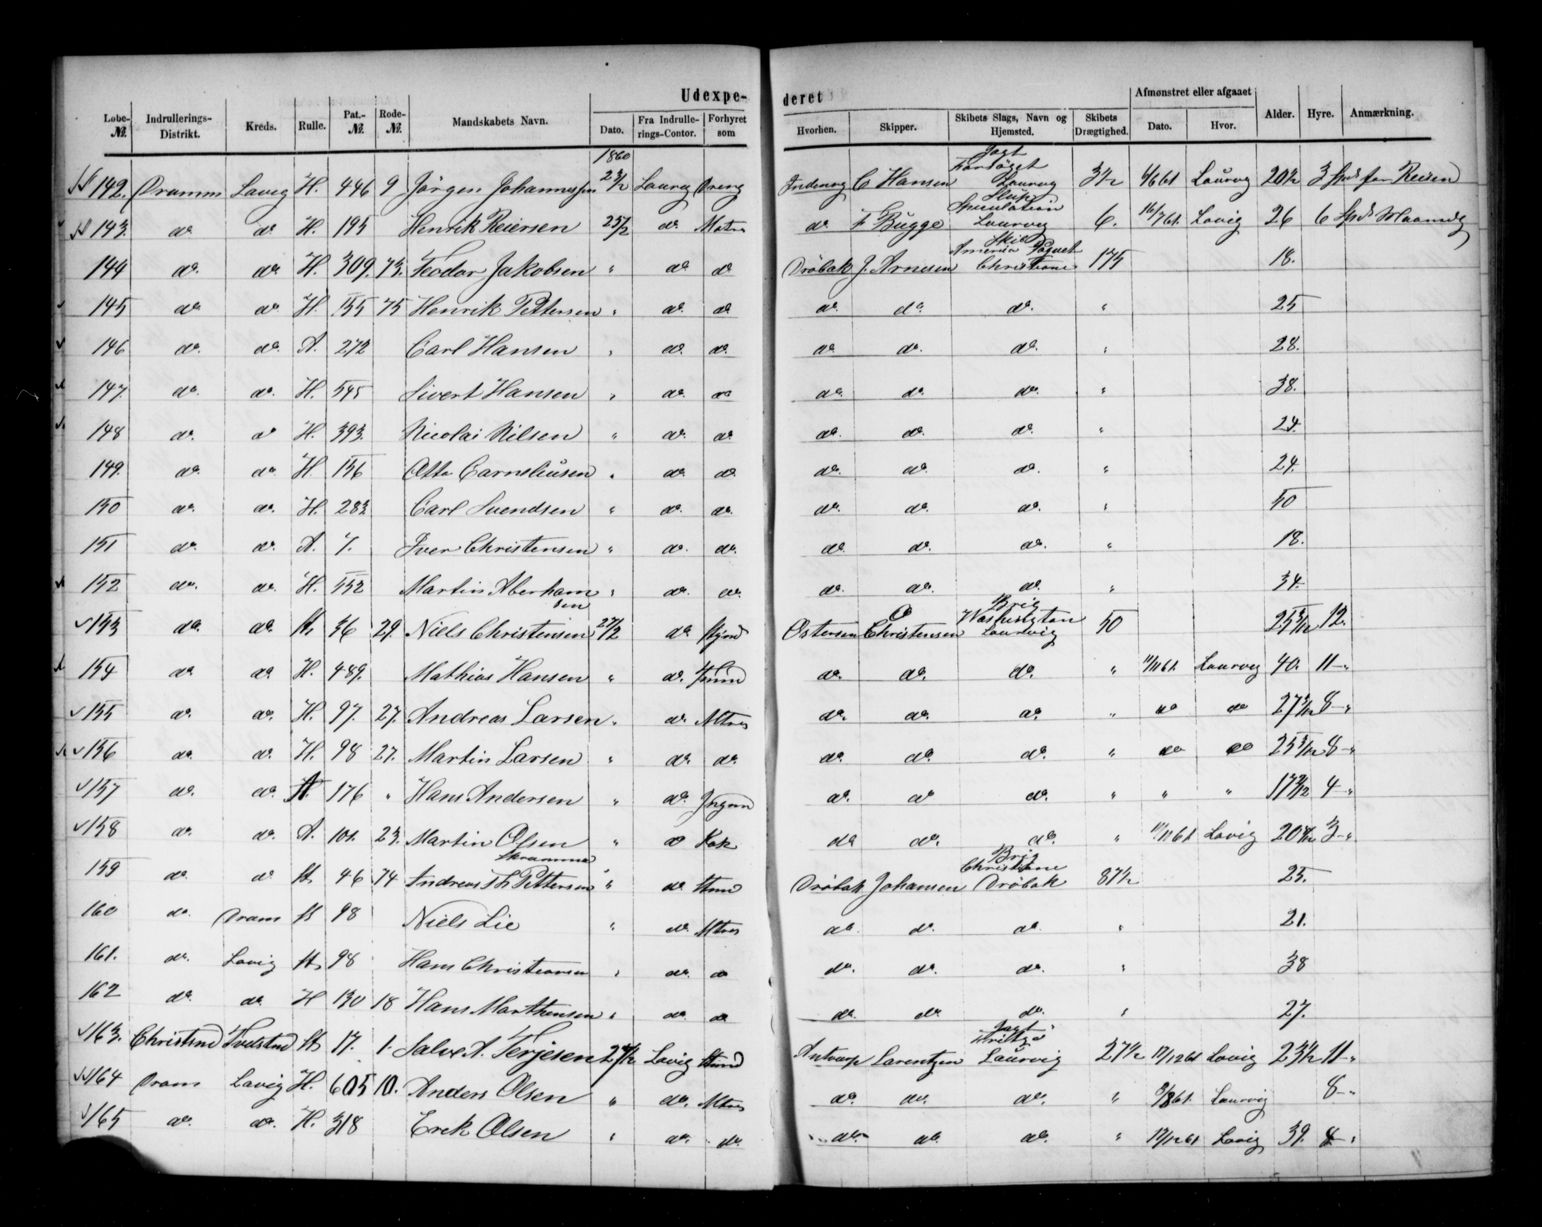 Udexpe-
deret
Afmønstret eller afgaaet
Løbe-№. Indrullerings-Distrikt. Kreds. Rulle. Pat.-№. Rode-№. Mandskabets Navn. Dato. Fra Indrullerings-Contor. Forhyret som Hvorhen. Skipper. Skibets Slags, Navn og Hjemsted. Skibets Drægtighed. Dato. Hvor. Alder. Hyre. Anmærkning.
1860
142. Dramm Lavig H. 446 9 Jørgen Johannessen Laurvig Dreng C Hansen Jagt Laurvig 3½ 4/6 61 Laurvig 20½ 3 Spd for Reisen
143. do do H. 195 Henrik Reiersen 23/2 do Matros do F Bugge Speculation Laurvig 6. 16/7 61. Lavig 26 6 Spd Maaned
144 do. do H. 309. 73. Teodor Jakobsen " do do Drøbak J. Arnesen America Paquet Christiania 175 18.
145 do do. H. 155 75 Henrik Pettersen " do. do do. do do. " 25
146 do. do. A. 272 Carl Hansen " do. do. do do. do. " 28.
147. do. do. H. 545 Sivert Hansen " do. do do. do. do. " 38.
148 do. do H. 393. Nicolai Nilsen " do. do do. do. do. " 24.
149. do. do H. 156 Otto Carneliusen " do. do do. do. do. " 24.
150 do. do. H. 283 Carl Svendsen " do. do. do. do. do. " 50
151 do. do. A. 7. Iver Christensen " do. do. do. do. do. " 18.
152 do. do. H. 552 Martin Aberhamsen " do. do. do. do. do. " 34.
153 do. do. 36 29. Niels Christensen 27/2 do Ostersøen C Christensen Brig Washington Laurvig 50 25 3/12 12.
154 do do H. 489. Mathias Hansen " do. do. do. do. " 11/11 61. Laurvig 40. 11 "
155 do. do. H. 97. 27. Andreas Larsen " do Mtros do. do. do. " do do 27 8 "
156 do. do. H. 98 27. Martin Larsen " do. do. do. do. do. " do do 25 8 "
157 do. do. A. 176 " Hans Andersen " do. Jngmd do. do do. " " " 17 4 "
158 do. do. A. 101. 23. Martin Olsen " do Kok do do. do. " 11/11 61. Lavig 20 3 "
159 do. do 46 74 Andreas Th. Pettersen " do Drøbak Johansen Brig Christiane Drøbak 87½ 25.
160 do. Dram 98 Niels Lie " do. Mtros do do. do " 21.
161. do. Lavig 98 Hans Christiansen " do. do do. do. do. " 38
162 do. do. H 130 18 Hans Marthensen " do. do do. do do. " 27.
163. Christsnd Tvedstnd 17. 1. Salve A. Terjesen Lavig Antverp Larentzen Jagt Laurvig 27½ 17/12 61 Lavig 23½ 11 "
164 Dram Lavig H. 605 10. Anders Olsen " do. Mtros do. do. do. " 9/8 61. Laurvig 8 "
165 do. do. H. 318 Erik Olsen " do. do. do. do. do. " 17/12 61 Lavig 39. 8 "